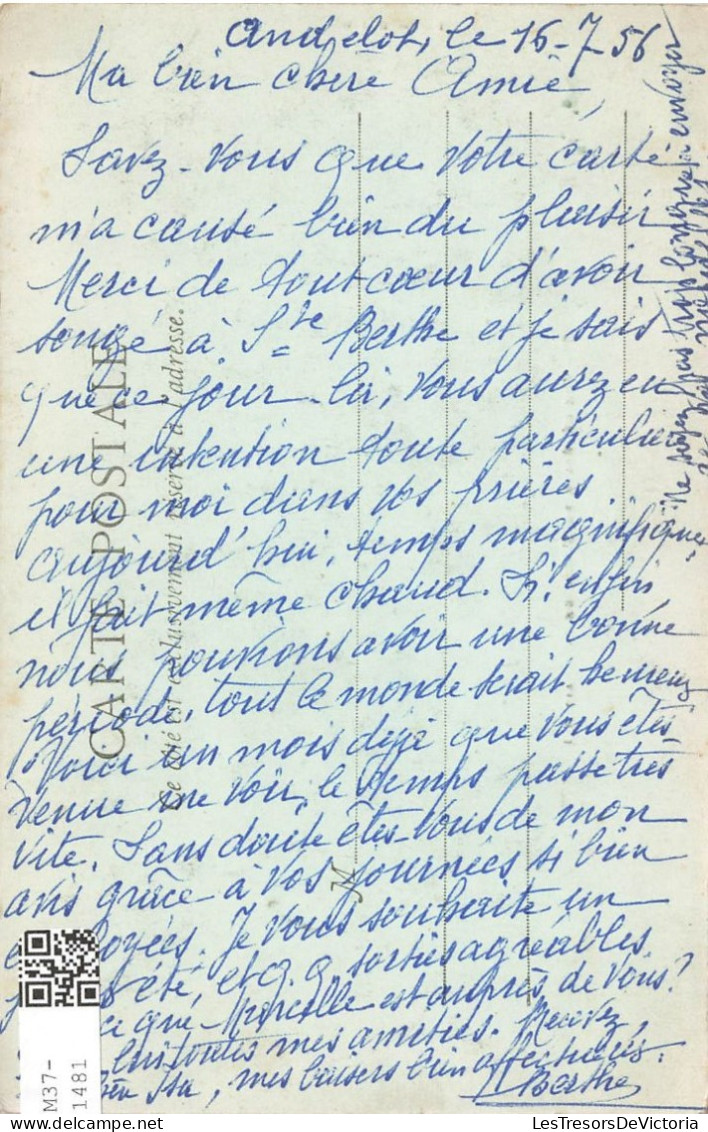 Andelot, le 16-7-56
Ma bien chère Amie,
Savez-vous que votre carte
m'a causé bien du plaisir
Merci de tout cœur d'avoir
songé à Ste Berthe et je sais
que ce jour-là, vous aurez eu
une intention toute particulière
pour moi dans vos prières.
aujourd'hui, temps magnifique,
il fait même chaud. Si, enfin
nous pouvions avoir une bonne
période, tout le monde serait heureux
Voici un mois déjà que vous êtes
venue me voir, le temps passe très
vite. Sans doute êtes-vous de mon
avis grâce à vos journées si bien
employées. Je vous souhaite un
été, et q.q. sorties agréables
ce que Marcelle est auprès de vous?
lui toutes mes amitiés. Recevez,
mes baisers bien affectueux.
Berthe
Ne soyez pas trop longue à m'envoyer
CARTE POSTALE
Ce côté est exclusivement réservé à l'adresse.
M
M37-
1481
LesTresorsDeVictoria.com